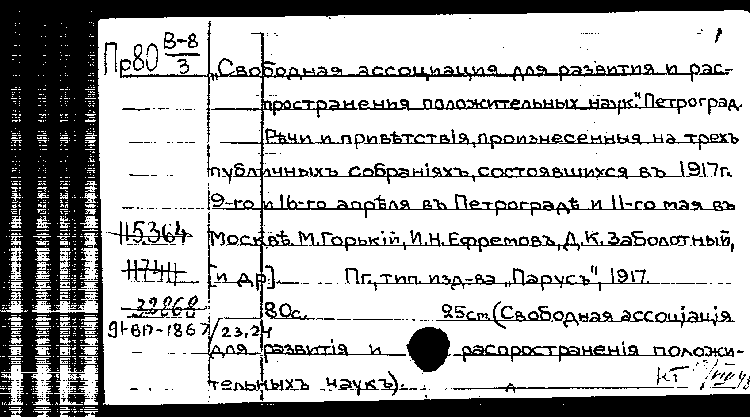 Пр80 В-8/3
„Свободная ассоциация для развития и рас-
пространения положительных наук". Петроград.
Рѣчи и привѣтствія, произнесенныя на трехъ
публичныхъ собраніяхъ, состоявшихся въ 1917г.
9-го и 16-го апрѣля въ Петроградѣ и 11-го мая въ
115364 Москвѣ. М. Горькій, И.Н. Ефремовъ, Д.К. Заболотный,
[и др]. Пг., тип. изд-ва „Парусъ", 1917.
80с. 25cm (Свободная ассоціація
для развитія и распространенія положи-
тельныхъ наукъ).
КГ